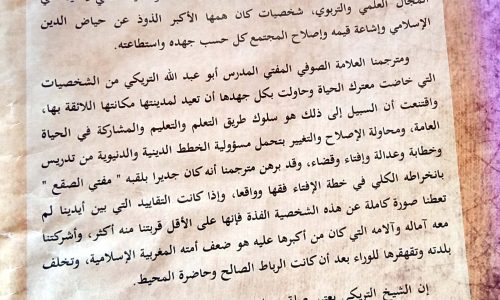 المجال العلمي والتربوي، شخصيات كان همها الأكبر الذوذ عن حياض الدين
الإسلامي وإشاعة قيمه وإصلاح المجتمع كل حسب جهده واستطاعته.
ومترجمنا العلامة الصوفي المفتي المدرس أبو عبد الله التريكي من الشخصيات
التي خاضت معترك الحياة وحاولت بكل جهدها أن تعيد لمدينتها مكانتها اللائقة بها،
واقتنعت أن السبيل إلى ذلك هو سلوك طريق التعلم والتعليم والمشاركة في الحياة
العامة، ومحاولة الإصلاح والتغيير بتحمل مسؤولية الخطط الدينية والدنيوية من تدريس
وخطابة وعدالة وإفتاء وقضاء، وقد برهن مترجمنا أنه كان جديرا بلقبه " مفتي الصقع "
بانخراطه الكلي في خطة الإفتاء فقها وواقعا، وإذا كانت التقاييد التي بين أيدينا لم
تعطنا صورة كاملة عن هذه الشخصية الفذة فإنها على الأقل قربتنا منه أكثر، وأشركتنا
معه آماله وآلامه التي كان من أكبرها عليه هو ضعف أمته المغربية الإسلامية، وتخلف
بلدته وتقهقرها للوراء بعد أن كانت الرباط الصالح وحاضرة المحيط.
إن الشيخ التريكي